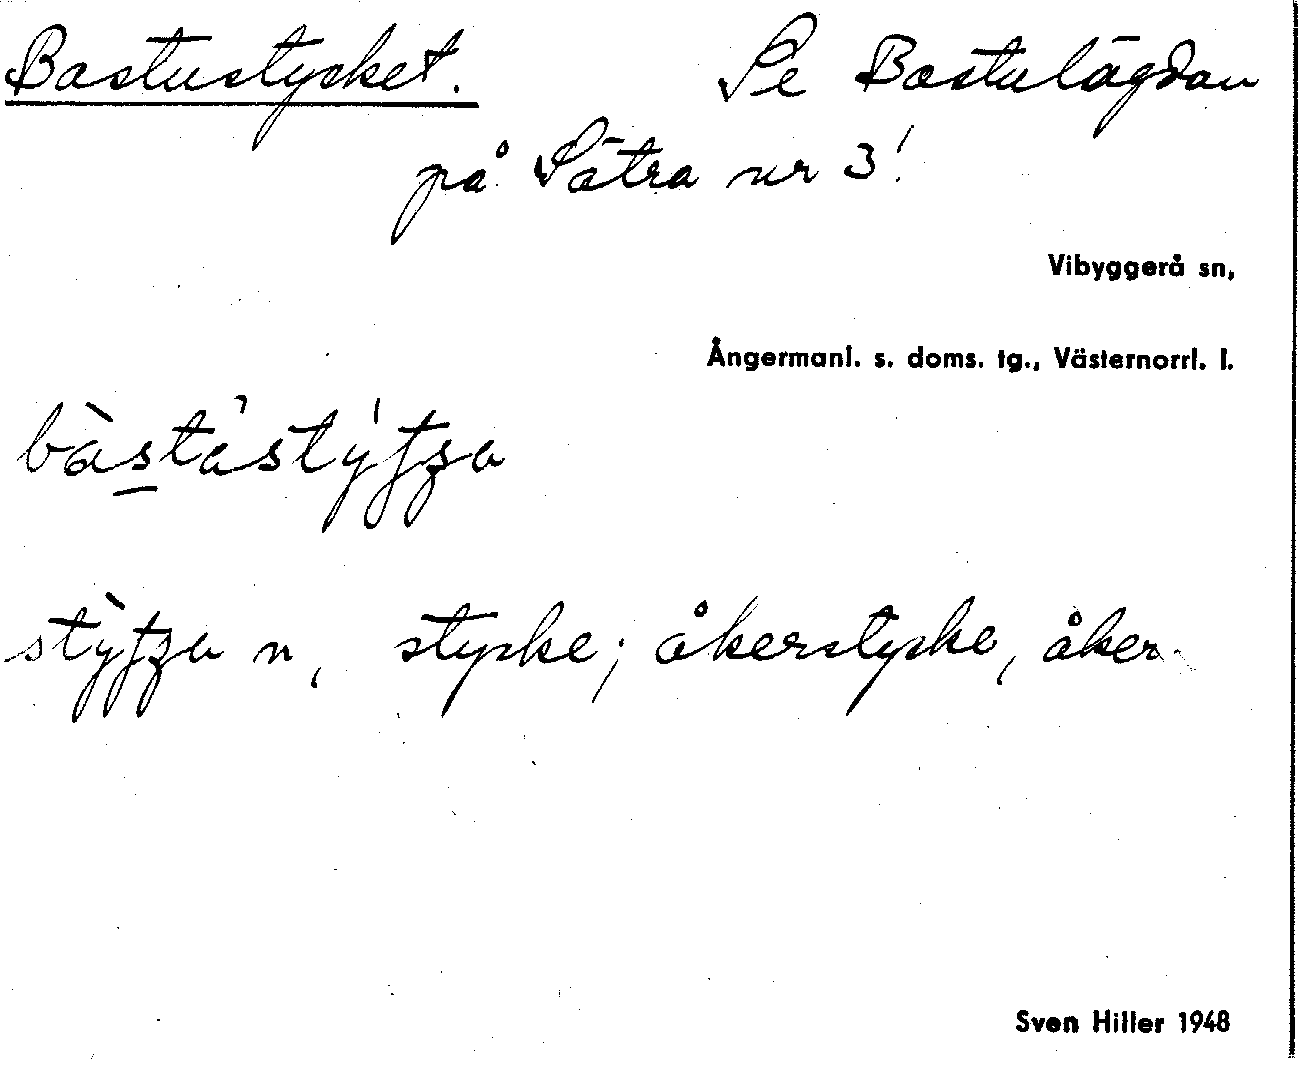 Bastustycket. Se Bastulägdan
på Sätra nr 3!
Vibyggerå sn,
Ångermanl. s. doms. tg., Västernorrl. l.
n, stycke; åkerstycke, åker
Sven Hiller 1948